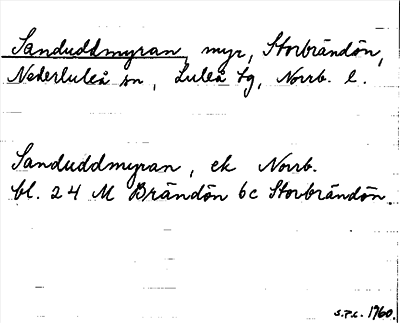 Sanduddmyran, myr, Storbrändön,
Nederluleå sn, Luleå tg, Norrb. l.
Sanduddmyran, ek Norrb.
bl. 24 M Brändön 6c Storbrändön.
S.P.L. 1960.